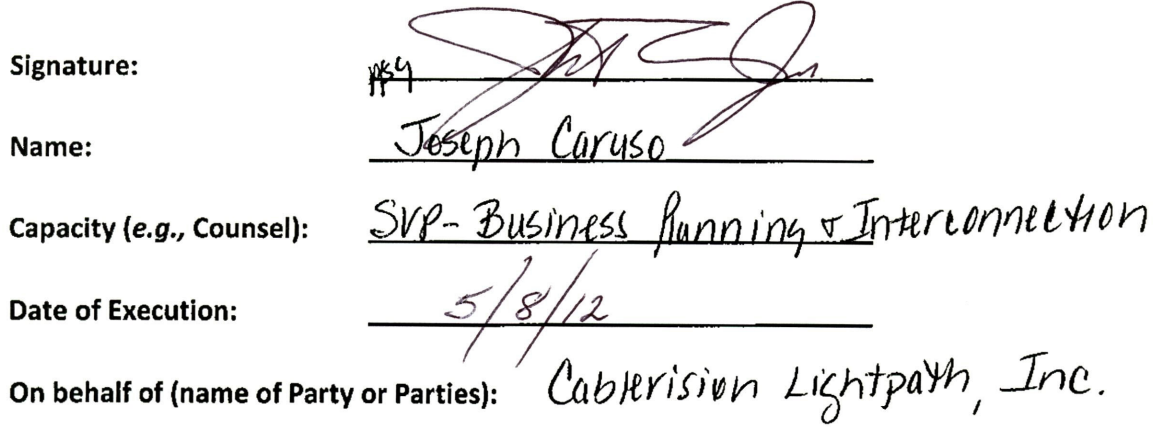 Signature:
Name: Joseph Caruso
Capacity (e.g., Counsel): SVP- Business Planning & Interconnection
Date of Execution: 5/8/12
On behalf of (name of Party or Parties): Cablevision Lightpath, Inc.